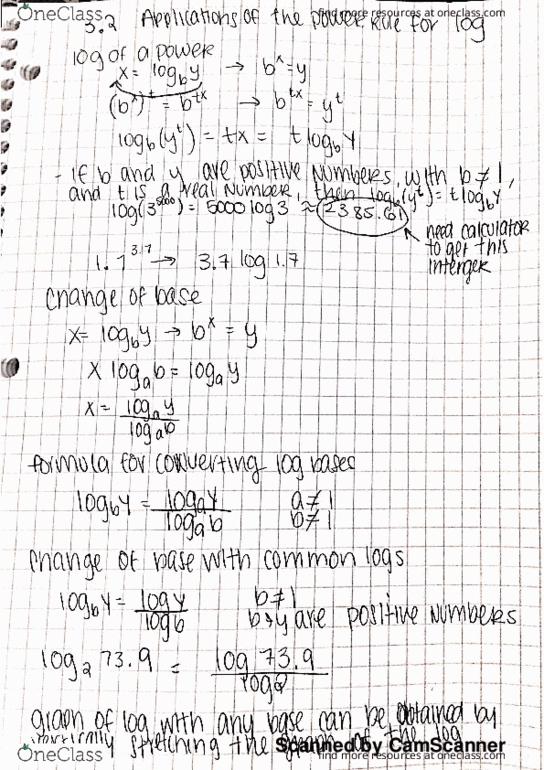 OneClass
find more resources at oneclass.com
3.2 Applications of the power Rule for log
log of a power
x = log_b y → b^x = y
(b^x)^t = b^tx → b^tx = y^t
log_b(y^t) = tx = t log_b y
- If b and y are positive numbers, with b ≠ 1,
and t is a real number, then log_b(y^t) = t log_b y
log(3^5000) = 5000 log 3 ≈ 2385.61
need calculator
to get this
interger
1.7^3.7 → 3.7 log 1.7
change of base
x = log_b y → b^x = y
x log_a b = log_a y
x = log_a y / log_a b
formula for converting log bases
log_b y = log_a y / log_a b a ≠ 1
b ≠ 1
change of base with common logs
log_b y = log y / log b b ≠ 1
b > y are positive numbers
log_2 73.9 = log 73.9 / log 2
graph of log with any base can be obtained by
vertically stretching the graph of the log
Scanned by CamScanner
OneClass
find more resources at oneclass.com